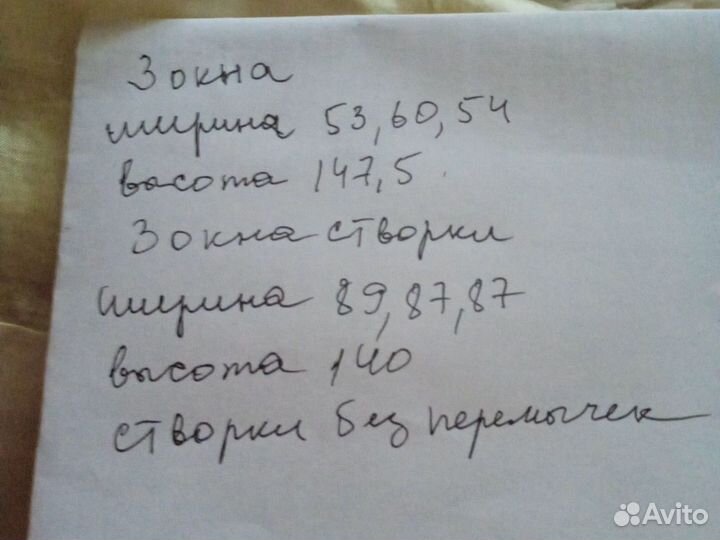 3 окна
ширина 53,60,54
высота 147,5
3 окна створки
ширина 89,87,87
высота 140
створки без перемычек
Avito